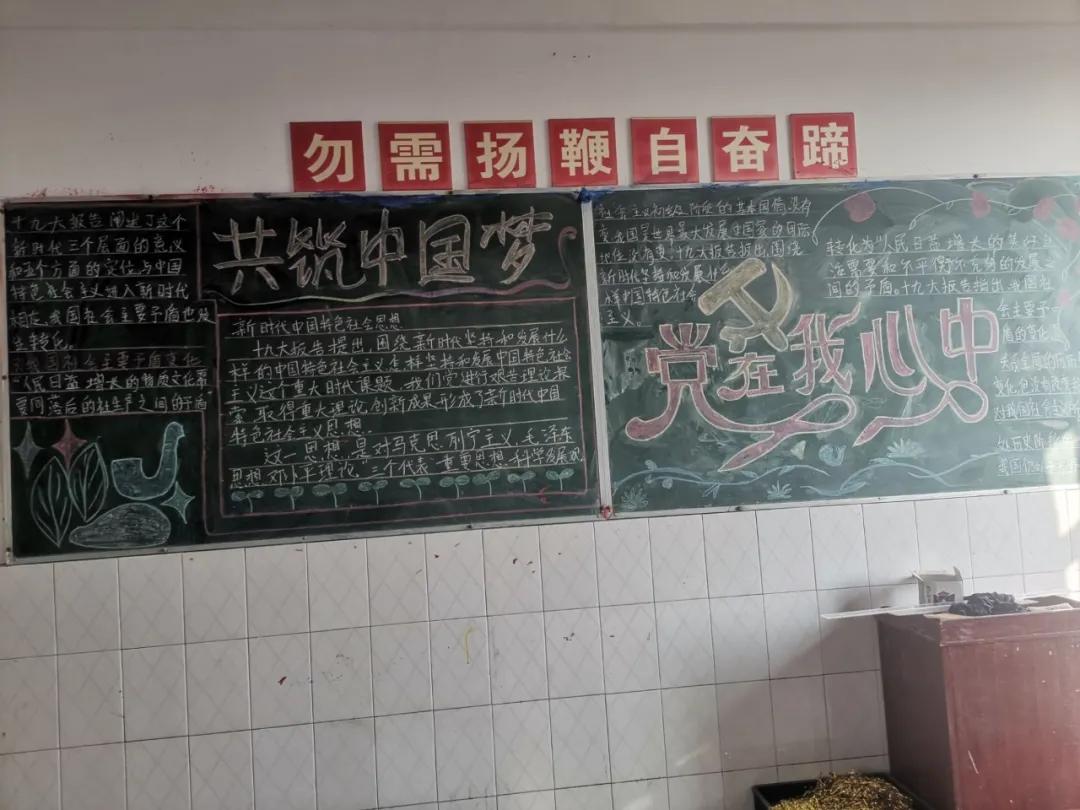 勿需扬鞭自奋蹄
十九大报告阐述了这个
新时代三个层面的意义
和五个方面的定位,与中国
特色社会主义进入新时代
相应,我国社会主要矛盾也发
生转化。
我国社会主要矛盾变化
"人民日益增长的物质文化需
要同落后的社生产之间的矛盾
共筑中国梦
新时代中国特色社会思想
十九大报告提出,围绕新时代坚持和发展什么
样的中国特色社会主义怎样坚持和发展中国特色社会
主义这个重大时代课题,我们党进行艰苦理论探
索,取得重大理论创新成果形成了新时代中国
特色社会主义思想
这一思想,是对马克思列宁主义、毛泽东
思想邓小平理论、三个代表重要思想科学发展观
社会主义初级阶段的基本国情没有
变我国是世界最大发展中国家的国际
地位没有变十九大报告指出,围绕
新时代坚持和发展什么
样中国特色社会
主义。
党在我心中
转化为"人民日益增长的美好生
活需要和不平衡不充分的发展之
间的矛盾。十九大报告指出,我国社
会主要矛
盾的变化
变化,但没有改变
对我国社会主义
我国仍